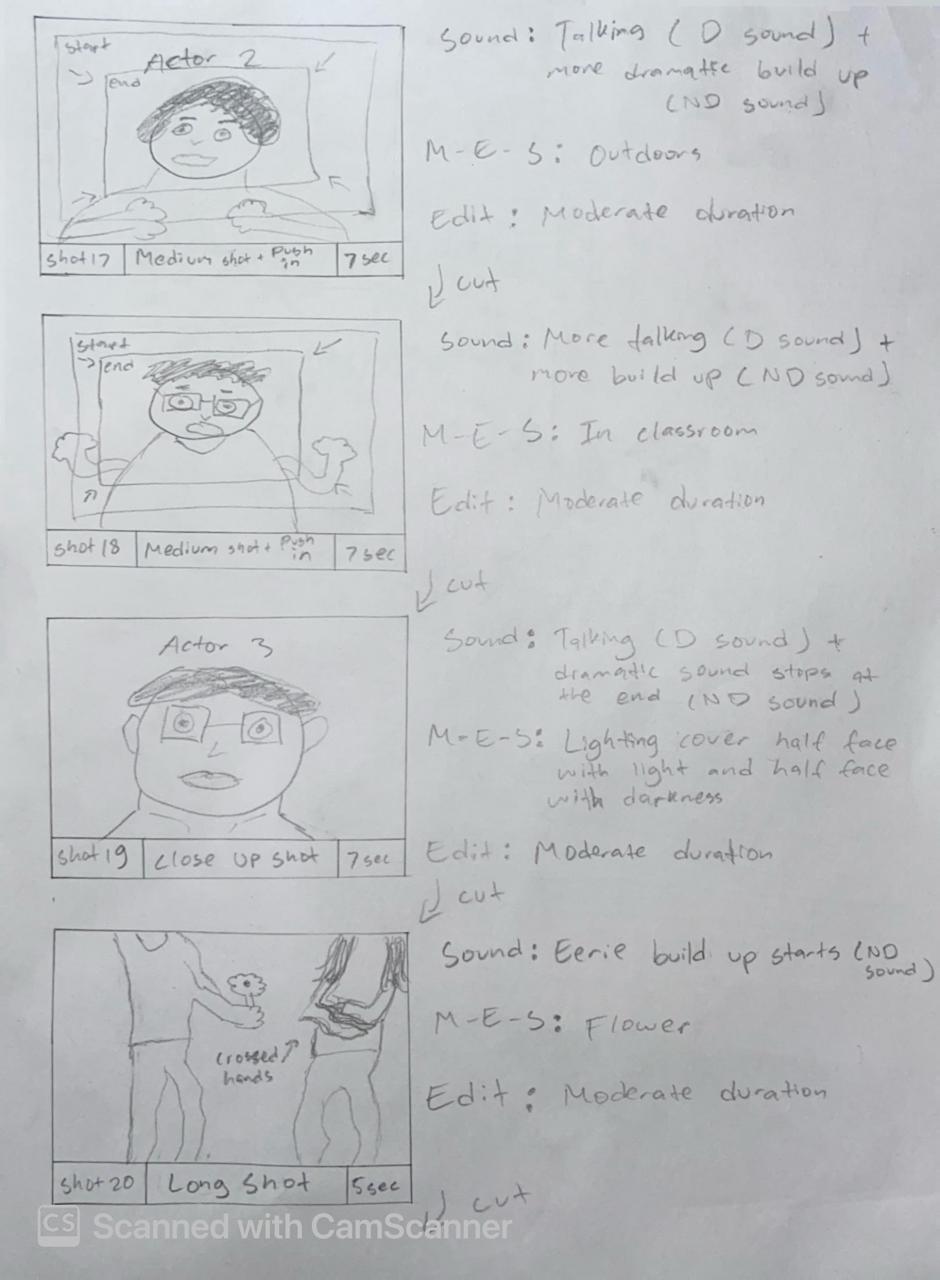 start
Actor 2
end
Shot 17
Medium shot + Push in
7 sec
Sound: Talking (D sound) +
more dramatic build up
(ND sound)
M-E-S: Outdoors
Edit: Moderate duration
cut
Start
end
Shot 18
Medium shot + Push in
7 sec
Sound: More talking (D sound) +
more build up (ND sound)
M-E-S: In classroom
Edit: Moderate duration
cut
Actor 3
Shot 19
Close up shot
7 sec
Sound: Talking (D sound) +
dramatic sound stops at
the end (ND sound)
M-E-S: Lighting cover half face
with light and half face
with darkness
Edit: Moderate duration
cut
crossed
hands
Shot 20
Long Shot
5 sec
Sound: Eerie build up starts (ND
sound)
M-E-S: Flower
Edit: Moderate duration
cut
CS Scanned with CamScanner